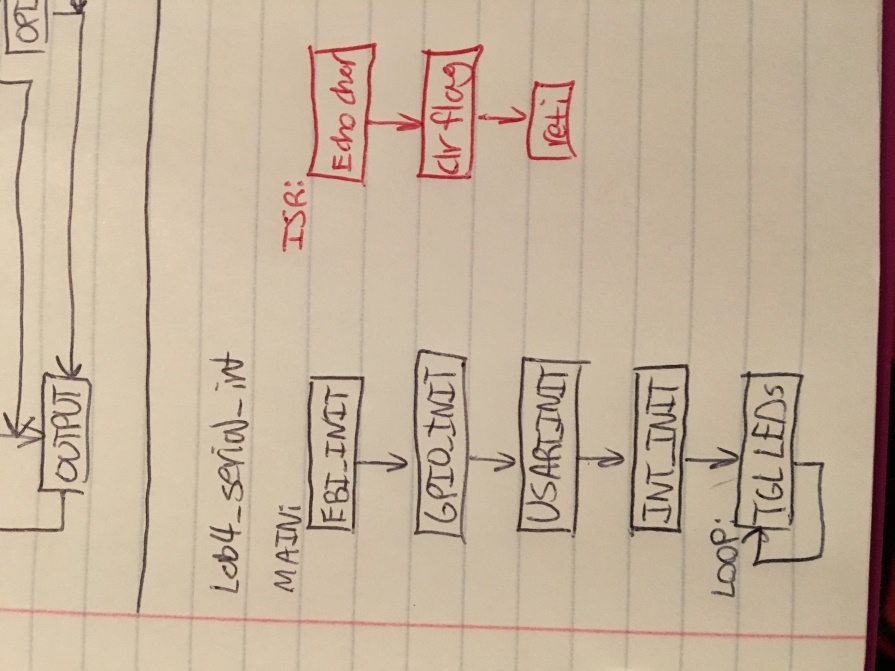 OUTPUT
Lab4_serial_int
MAIN:
EBI_INIT
GPIO_INIT
USARTINIT
INT_INIT
LOOP:
TGL LEDs
ISR:
Echo char
clr flag
reti